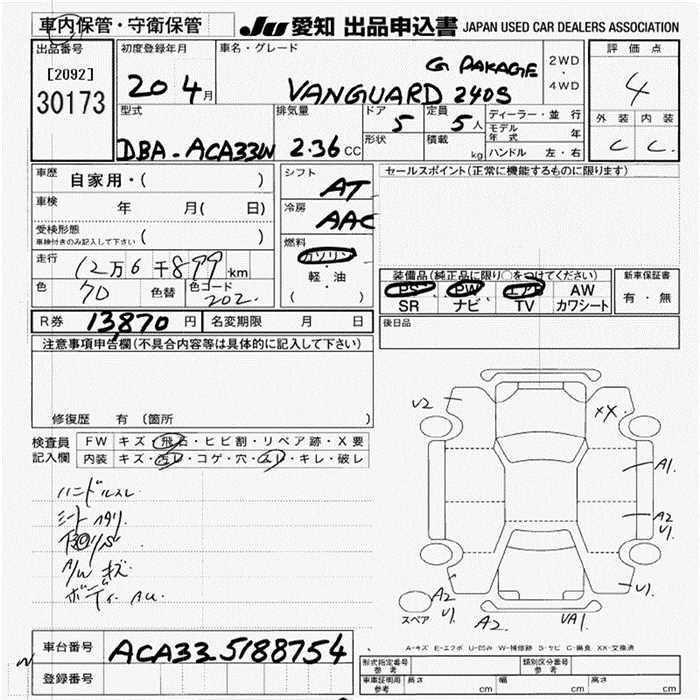 車内保管・守衛保管
JU 愛知 出品申込書 JAPAN USED CAR DEALERS ASSOCIATION
出品番号
[2092]
30173
初度登録年月
20 4月
車名・グレード
G PAKAGE
VANGUARD 240S
2WD
・
4WD
評価点
4
外装 内装
C C.
型式
DBA-ACA33W
排気量
2.36 CC
ドア
5
形状
定員
5人
積載
kg
ディーラー・並行
モデル年式 年
ハンドル 左・右
車歴 自家用・( )
車検 年 月( 日)
受検形態
車検付きのみ記入して下さい ( )
走行 12万6千899km
色 70 色替 色コード 202.
シフト
AT
冷房
AAC
燃料
ガソリン
・
軽・油
( )
セールスポイント(正常に機能するものに限ります)
装備品(純正品に限り○をつけてください)
PS・PW・エアB AW
SR ナビ TV カワシート
新車保証書
有・無
後日品
R券 13,870円 名変期限 月 日
注意事項申告欄(不具合内容等は具体的に記入して下さい)
修復歴 有 (箇所
検査員記入欄
FW キズ・飛石・ヒビ割・リペア跡・X要
内装 キズ・汚レ・コゲ・穴・スレ・キレ・破レ
ハンドルスレ
シートヘタリ
A/W キズ
ボディ AU.
U2
XX.
A1.
A2
U1.
U1.
A2
U1.
A2.
UA1.
スペア
A-キズ E-エクボ U-凹み W-補修跡 S-サビ C-腐食 XX-交換済
車台番号 ACA33-5188754
登録番号
型式指定番号
参考
類別区分番号
参考
車車証明用
参考
長さ cm 幅 cm 高さ cm